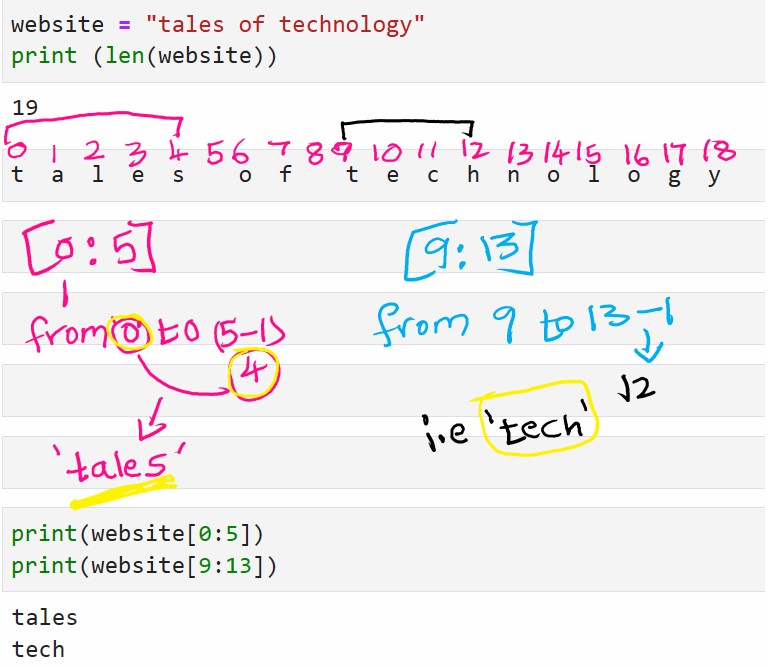 website = "tales of technology"
print (len(website))
19
0 1 2 3 4 5 6 7 8 9 10 11 12 13 14 15 16 17 18
t a l e s o f t e c h n o l o g y
[0:5] [9:13]
from 0 to (5-1) from 9 to 13-1
4 12
i.e 'tech'
'tales'
print(website[0:5])
print(website[9:13])
tales
tech